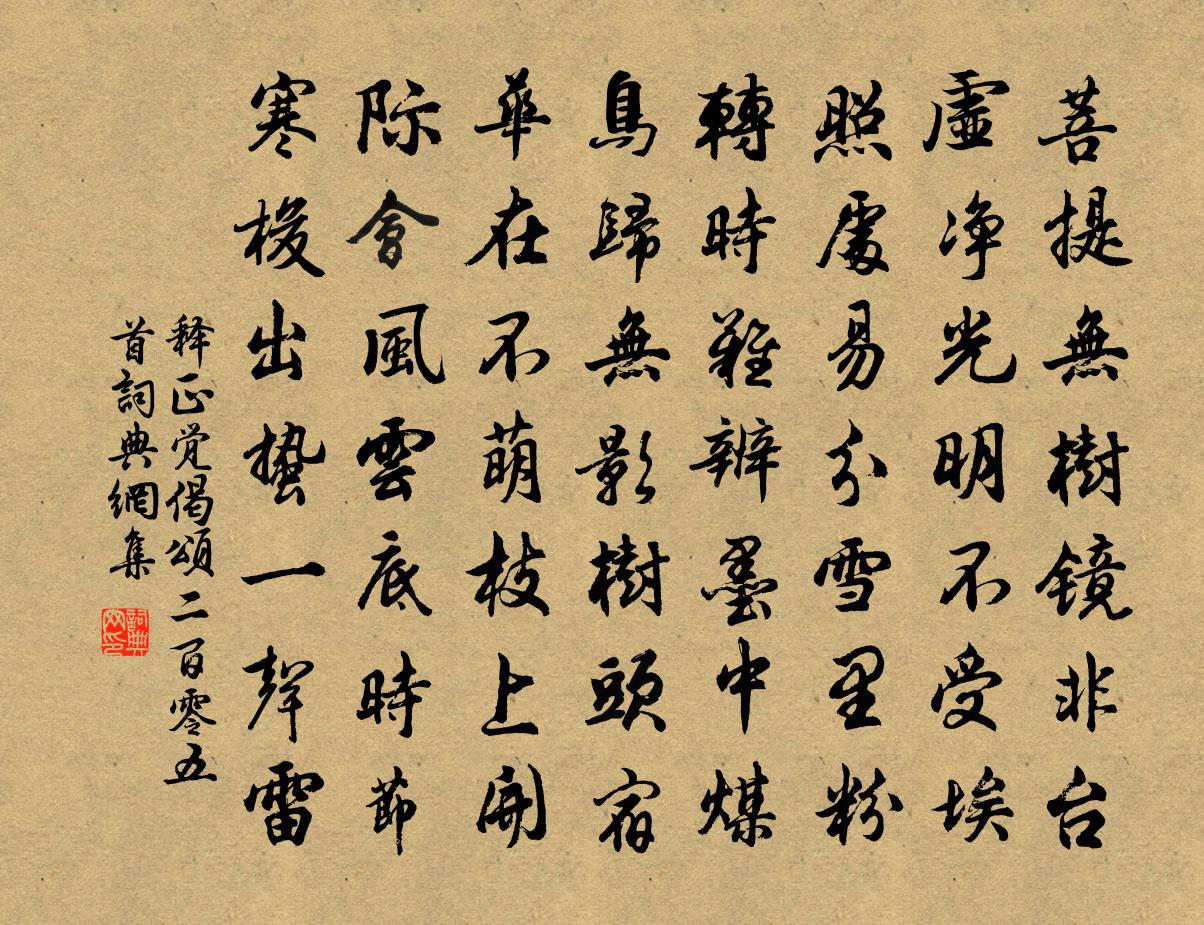 菩提無樹镜非台
虛净光明不受埃
照處易分雪里粉
轉時難辨墨中煤
鳥歸無影樹頭宿
華在不萌枝上開
际會風雲底時節
寒梭出蛰一聲雷
释正觉偈頌二百零五
首詞典網集
詞典网印